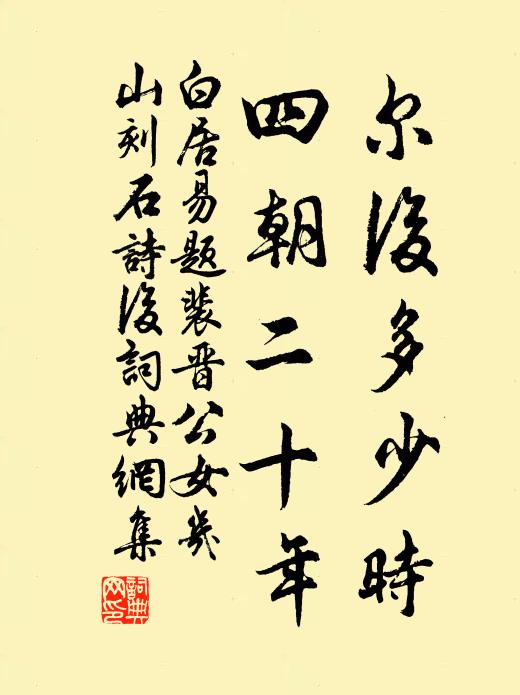 尔後多少時
四朝二十年
白居易題裴晋公女几
山刻石詩後詞典網集
詞典
网印